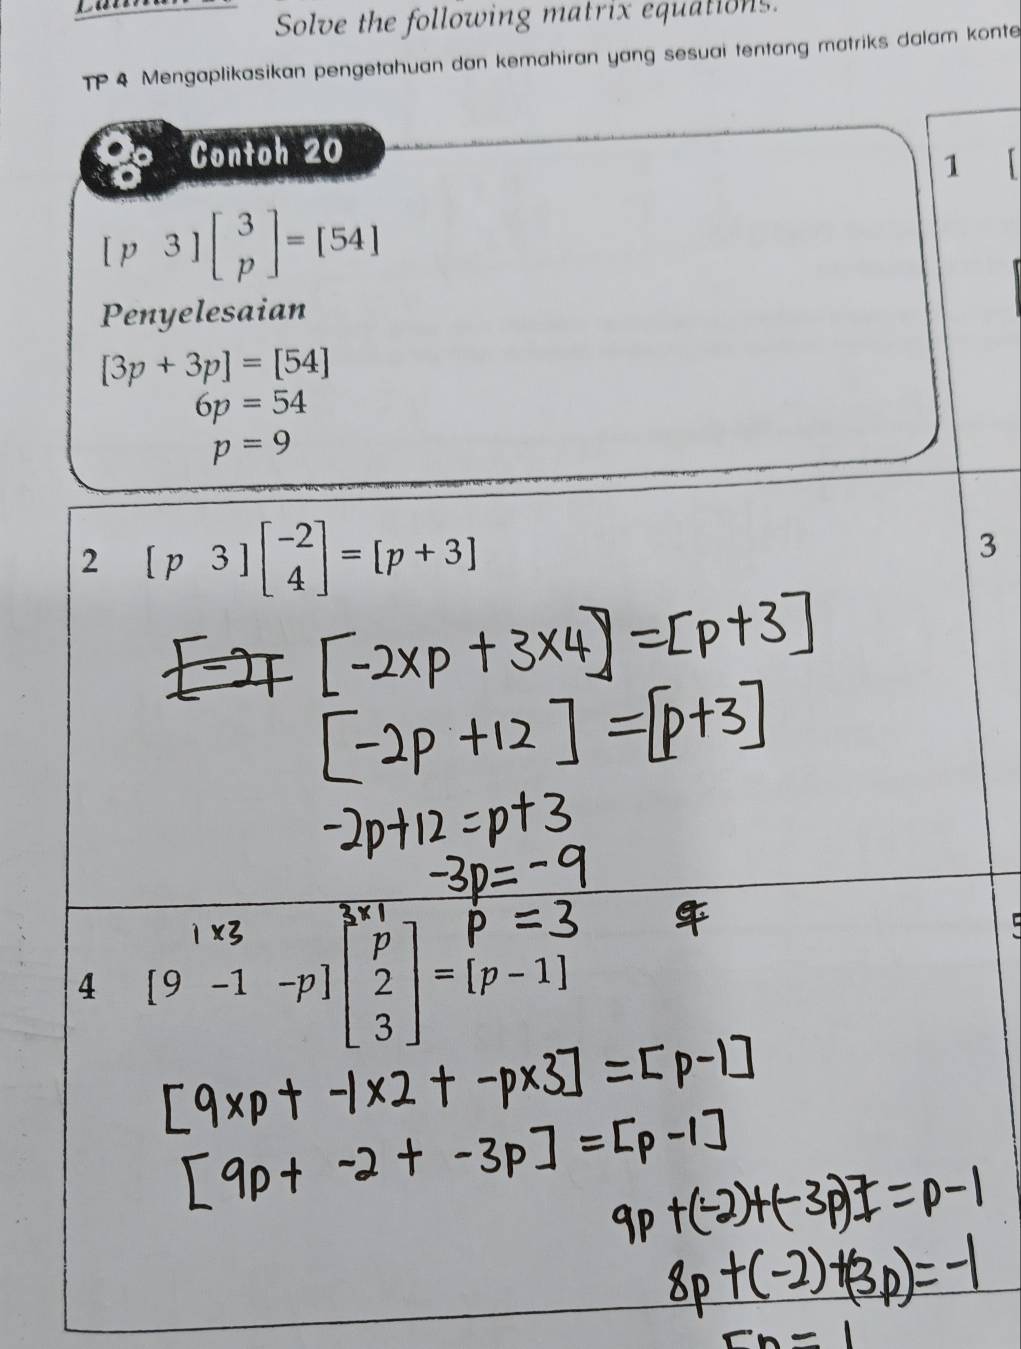 Solve the following matrix equations.
TP 4 Mengaplikasikan pengetahuan dan kemahiran yang sesuai tentang matriks dalam konte
Contoh 20
[p 3] [3 p] = [54]
Penyelesaian
[3p + 3p] = [54]
6p = 54
p = 9
1 [
2 [p 3] [-2 4] = [p + 3]
[-2×p + 3×4] = [p+3]
[-2p + 12] = [p+3]
-2p+12 = p+3
-3p = -9
p = 3
3
1×3 3×1
4 [9 -1 -p] [p 2 3] = [p - 1]
[9×p + -1×2 + -p×3] = [p-1]
[9p + -2 + -3p] = [p-1]
9p+(-2)+(-3p) = p-1
8p+(-2)+(3p) = -1
5p = 1